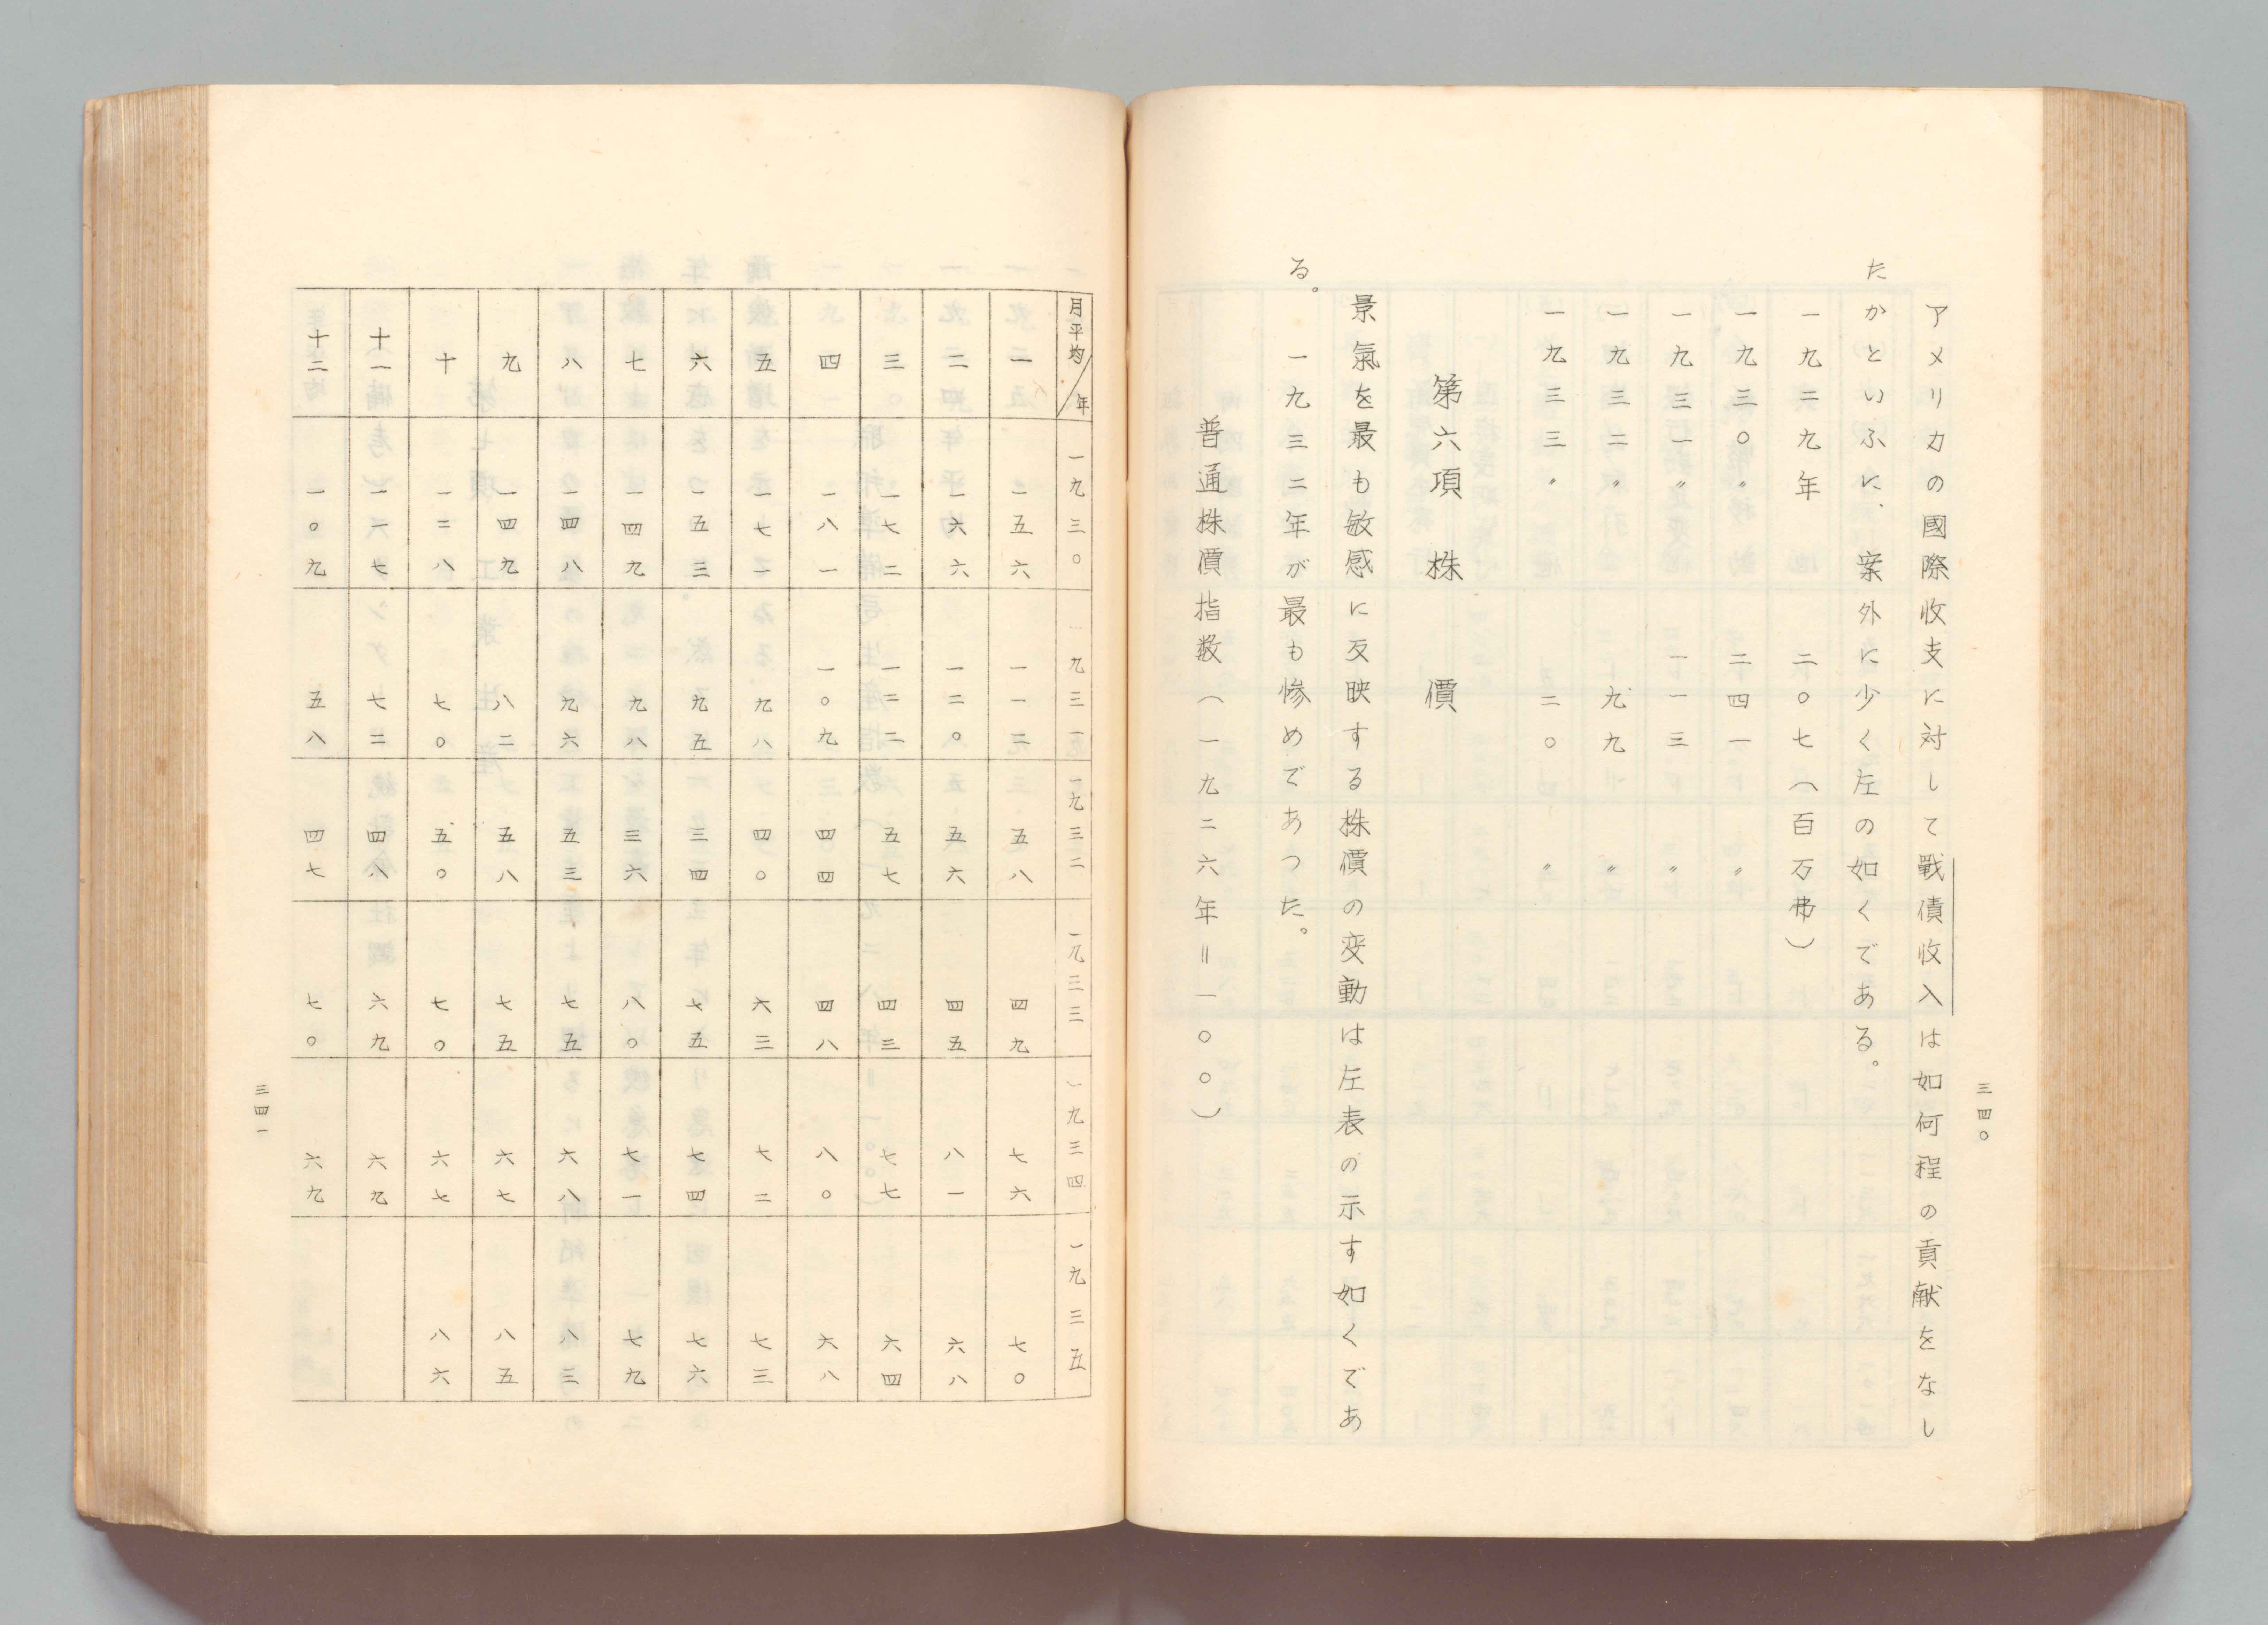 三四〇
アメリカの國際收支に対して戰債收入は如何程の貢献をなし
たかといふに、案外に少く左の如くである。
一九二九年 二〇七（百万弗）
一九三〇〃 二四一〃
一九三一〃 一一三〃
一九三二〃 九九〃
一九三三〃 二〇〃
第六項 株價
景氣を最も敏感に反映する株價の変動は左表の示す如くであ
る。一九三二年が最も惨めであつた。
普通株價指数（一九二六年＝一〇〇）
月平均／年 一九三〇 一九三一 一九三二 一九三三 一九三四 一九三五
一 一五六 一一二 五八 四九 七六 七〇
二 一六六 一二〇 五六 四五 八一 六八
三 一七二 一二二 五七 四三 七七 六四
四 一八一 一〇九 四四 四八 八〇 六八
五 一七一 九八 四〇 六三 七二 七三
六 一五三 九五 三四 七五 七四 七六
七 一四九 九八 三六 八〇 七一 七九
八 一四八 九六 五三 七五 六八 八三
九 一四九 八二 五八 七五 六七 八五
十 一二八 七〇 五〇 七〇 六七 八六
十一 一一七 七二 四八 六九 六九
十二 一〇九 五八 四七 七〇 六九
三四一